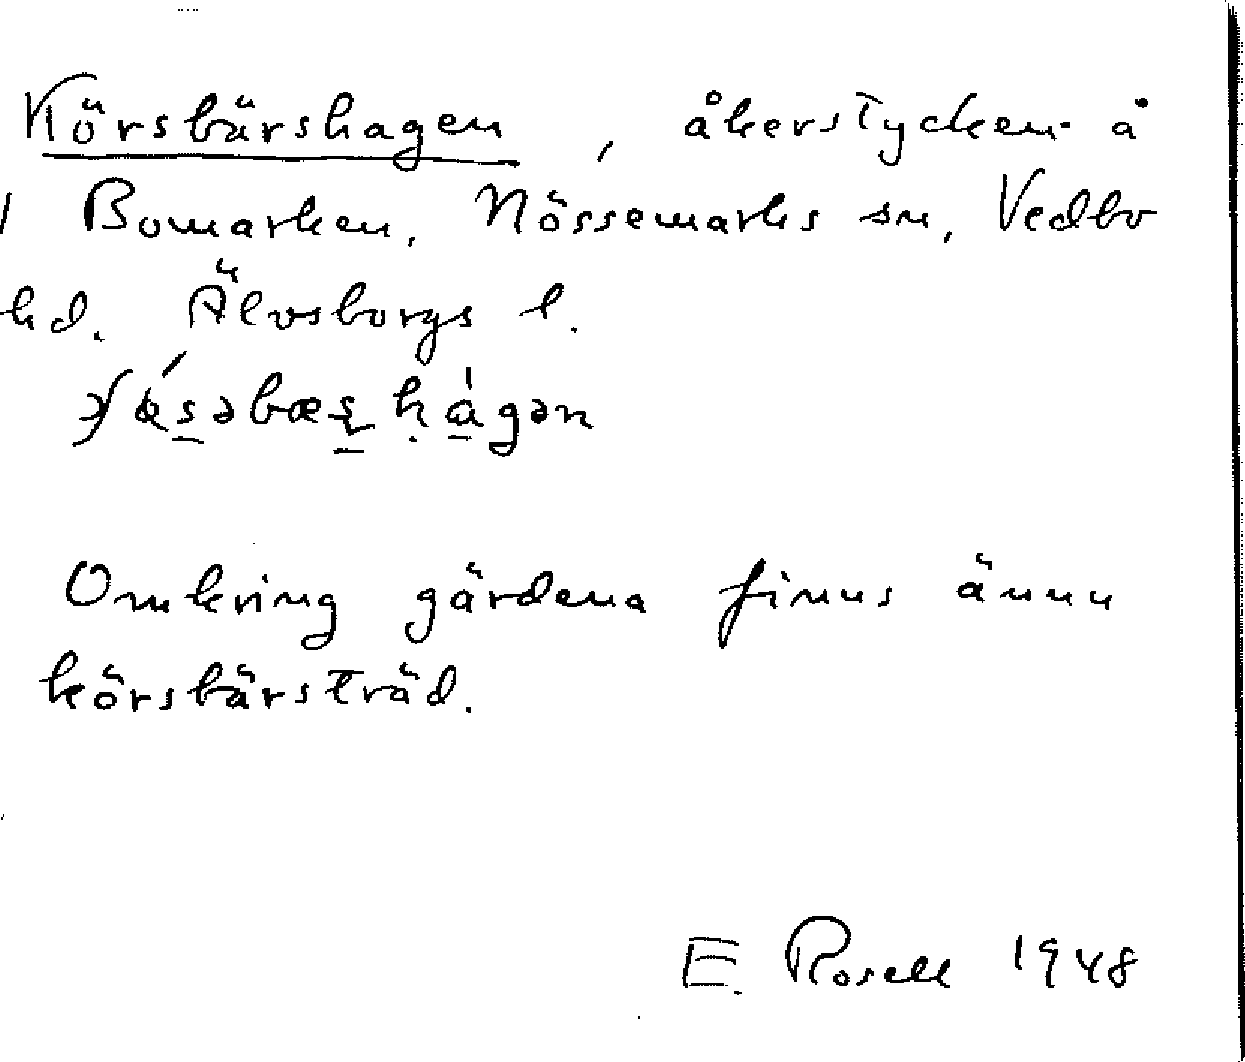 Körsbärshagen, åkerstycken å
1 Bomarken, Nössemarks sn, Vedbo
hd. Älvsborgs l.
Omkring gärdena finns ännu
körsbärsträd.
E. Rosell 1948